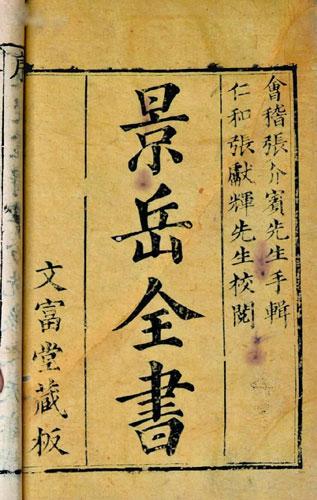 會稽張介賓先生手輯
仁和張獻輝先生校閱
景岳全書
文富堂藏板